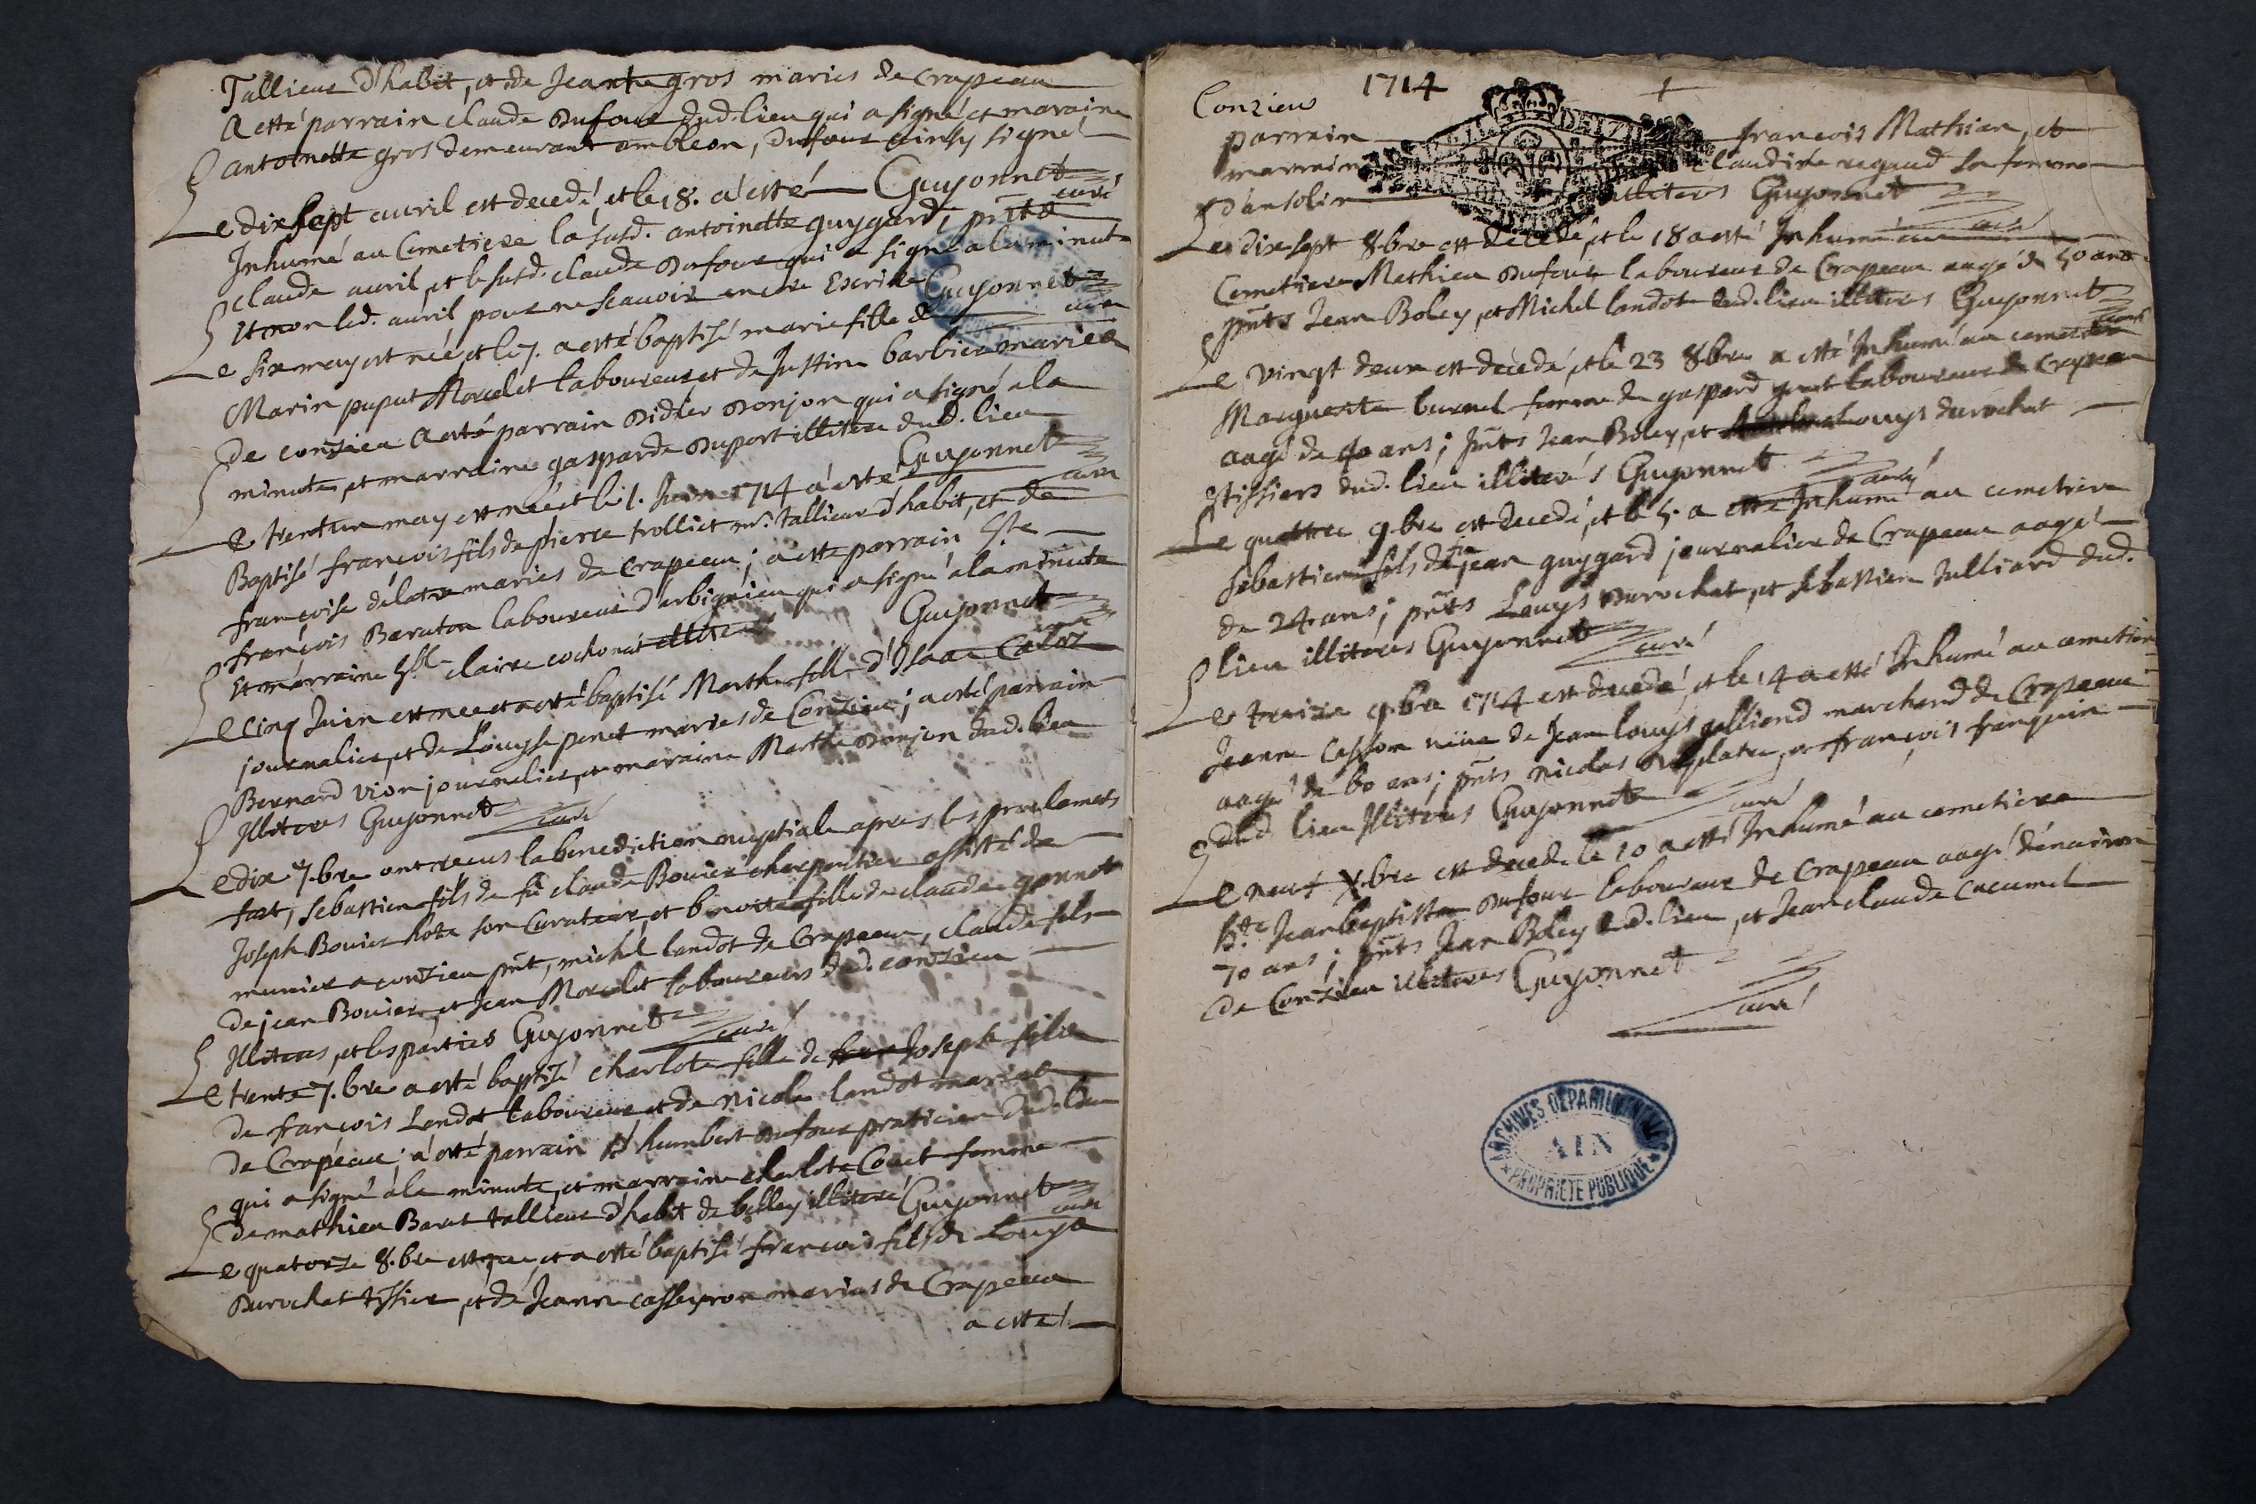 Tallieur d'habit, et de Jeante gros maries de crapeau
A esté parrain claude Dufour dud. lieu qui a signé et maraine
antoinette gros demeurant ambleon, Dufour ainsy signé
Guyonnet curé
Le dixsept auril est decedé, et le 18. a esté
Inhumé au Cemetiere la susd. antoinette guygard, pnts
claude auril, et le susd. claude Dufour qui a signé a la minute
Et non led. auril pour ne scauoir encore Escrire Guyonnet curé
Le six may est née et le 7. a esté baptisé marie fille de
Marin puput Morcelet laboureur et de Justine barbier mariés
De conzieu A esté parrain Didier Donjon qui a signé a la
minute, et marraine gasparde Duport illitere dud. lieu
Guyonnet curé
Le trentun may est né et le 1. Juin 1714 a esté
Baptisé françois fils de pierre trolliet mr. tallieur d'habit, et de
françoise delatre maries de crapeau; a esté parrain Sr.
françois Baraton laboureur d'arbignieu qui a signé a la minute
Et marraine claire cochonat illitere Guyonnet curé
Le cinq Juin est nee et a esté baptisé Marthe fille d'Isaac
journalier, et de Louyse penet maries de Conzieu; a esté parrain
Bernard vion journalier, et maraine Marthe Donjon dud. lieu
Illiteres Guyonnet curé
Le dix 7.bre ont receus la benediction nuptiale apres les proclamets
fait, sebastien fils de fû claude Bouier charpentier assisté de
Joseph Bouier hote son Curateur, et benoite fille de claude gonnet
munier a conzieu pnt, michel landot de Crapeau, claude fils
de jean Bouier, et Jean Morcelet laboureurs dud. conzieu
Illiteres, et les parties Guyonnet curé
Le trente 7.bre a esté baptisé charlote fille de Joseph fils
de françois Landot laboureur et de Nicole landot mariés
de Crapeau; a esté parrain humbert Dufour praticien dud. lieu
qui a signé a la minute, et marraine charlote Couet femme
de mathieu Barut tallieur d'habit de belley illiteré Guyonnet curé
Le quatorze 8.bre est né, et a esté baptisé françois fils de Louys
Durochat tissier, et de Jeanne casseyron maries de Crapeau
a esté
Conzieu 1714
parrain françois Mathian, et
marraine claudine regaud sa femme
D'antolin illiteres Guyonnet curé
Le dix sept 8.bre est decedé, et le 18 a esté Inhumé au
Cemetiere Mathieu Dufour laboureur de Crapeau aagé de 50 ans
pnts Jean Boley, et Michel landot dud. lieu illiteres Guyonnet curé
Le vingt deux est decedé, et le 23 8.bre a esté Inhumé au cemetiere
Marguerite burnet femme de gaspard laboureur de Crapeau
aagé de 40 ans; pnts Jean Boley, et Louys durochat
tissiers dud. lieu illiterés Guyonnet curé
Le quattre 9.bre est decedé, et le 5. a esté Inhumé au cemetiere
sebastien fils de fû jean guygard journalier de Crapeau aagé
de 24 ans; pnts Louys Durochat, et sebastien Julliard dud.
lieu illiteres Guyonnet curé
Le treize 9.bre 1714 est decedé, et le 14 a esté Inhumé au cemetiere
Jeanne Casson veuve de Jean louys galliand marchand de Crapeau
aagé de 60 ans; pnts Nicolas Duplatre, et françois franquin
dud. lieu Illiteres Guyonnet curé
Le neuf X.bre est decedé le 10 a esté Inhumé au cemetiere
hte. Jean baptiste Dufour laboureur de Crapeau aagé d'enuiron
70 ans; pnts Jean Boley dud. lieu, et Jean claude cucumel
de Conzieu illiteres Guyonnet
curé
ARCHIVES DEPARTEMENTALES
AIN
PROPRIETE PUBLIQUE